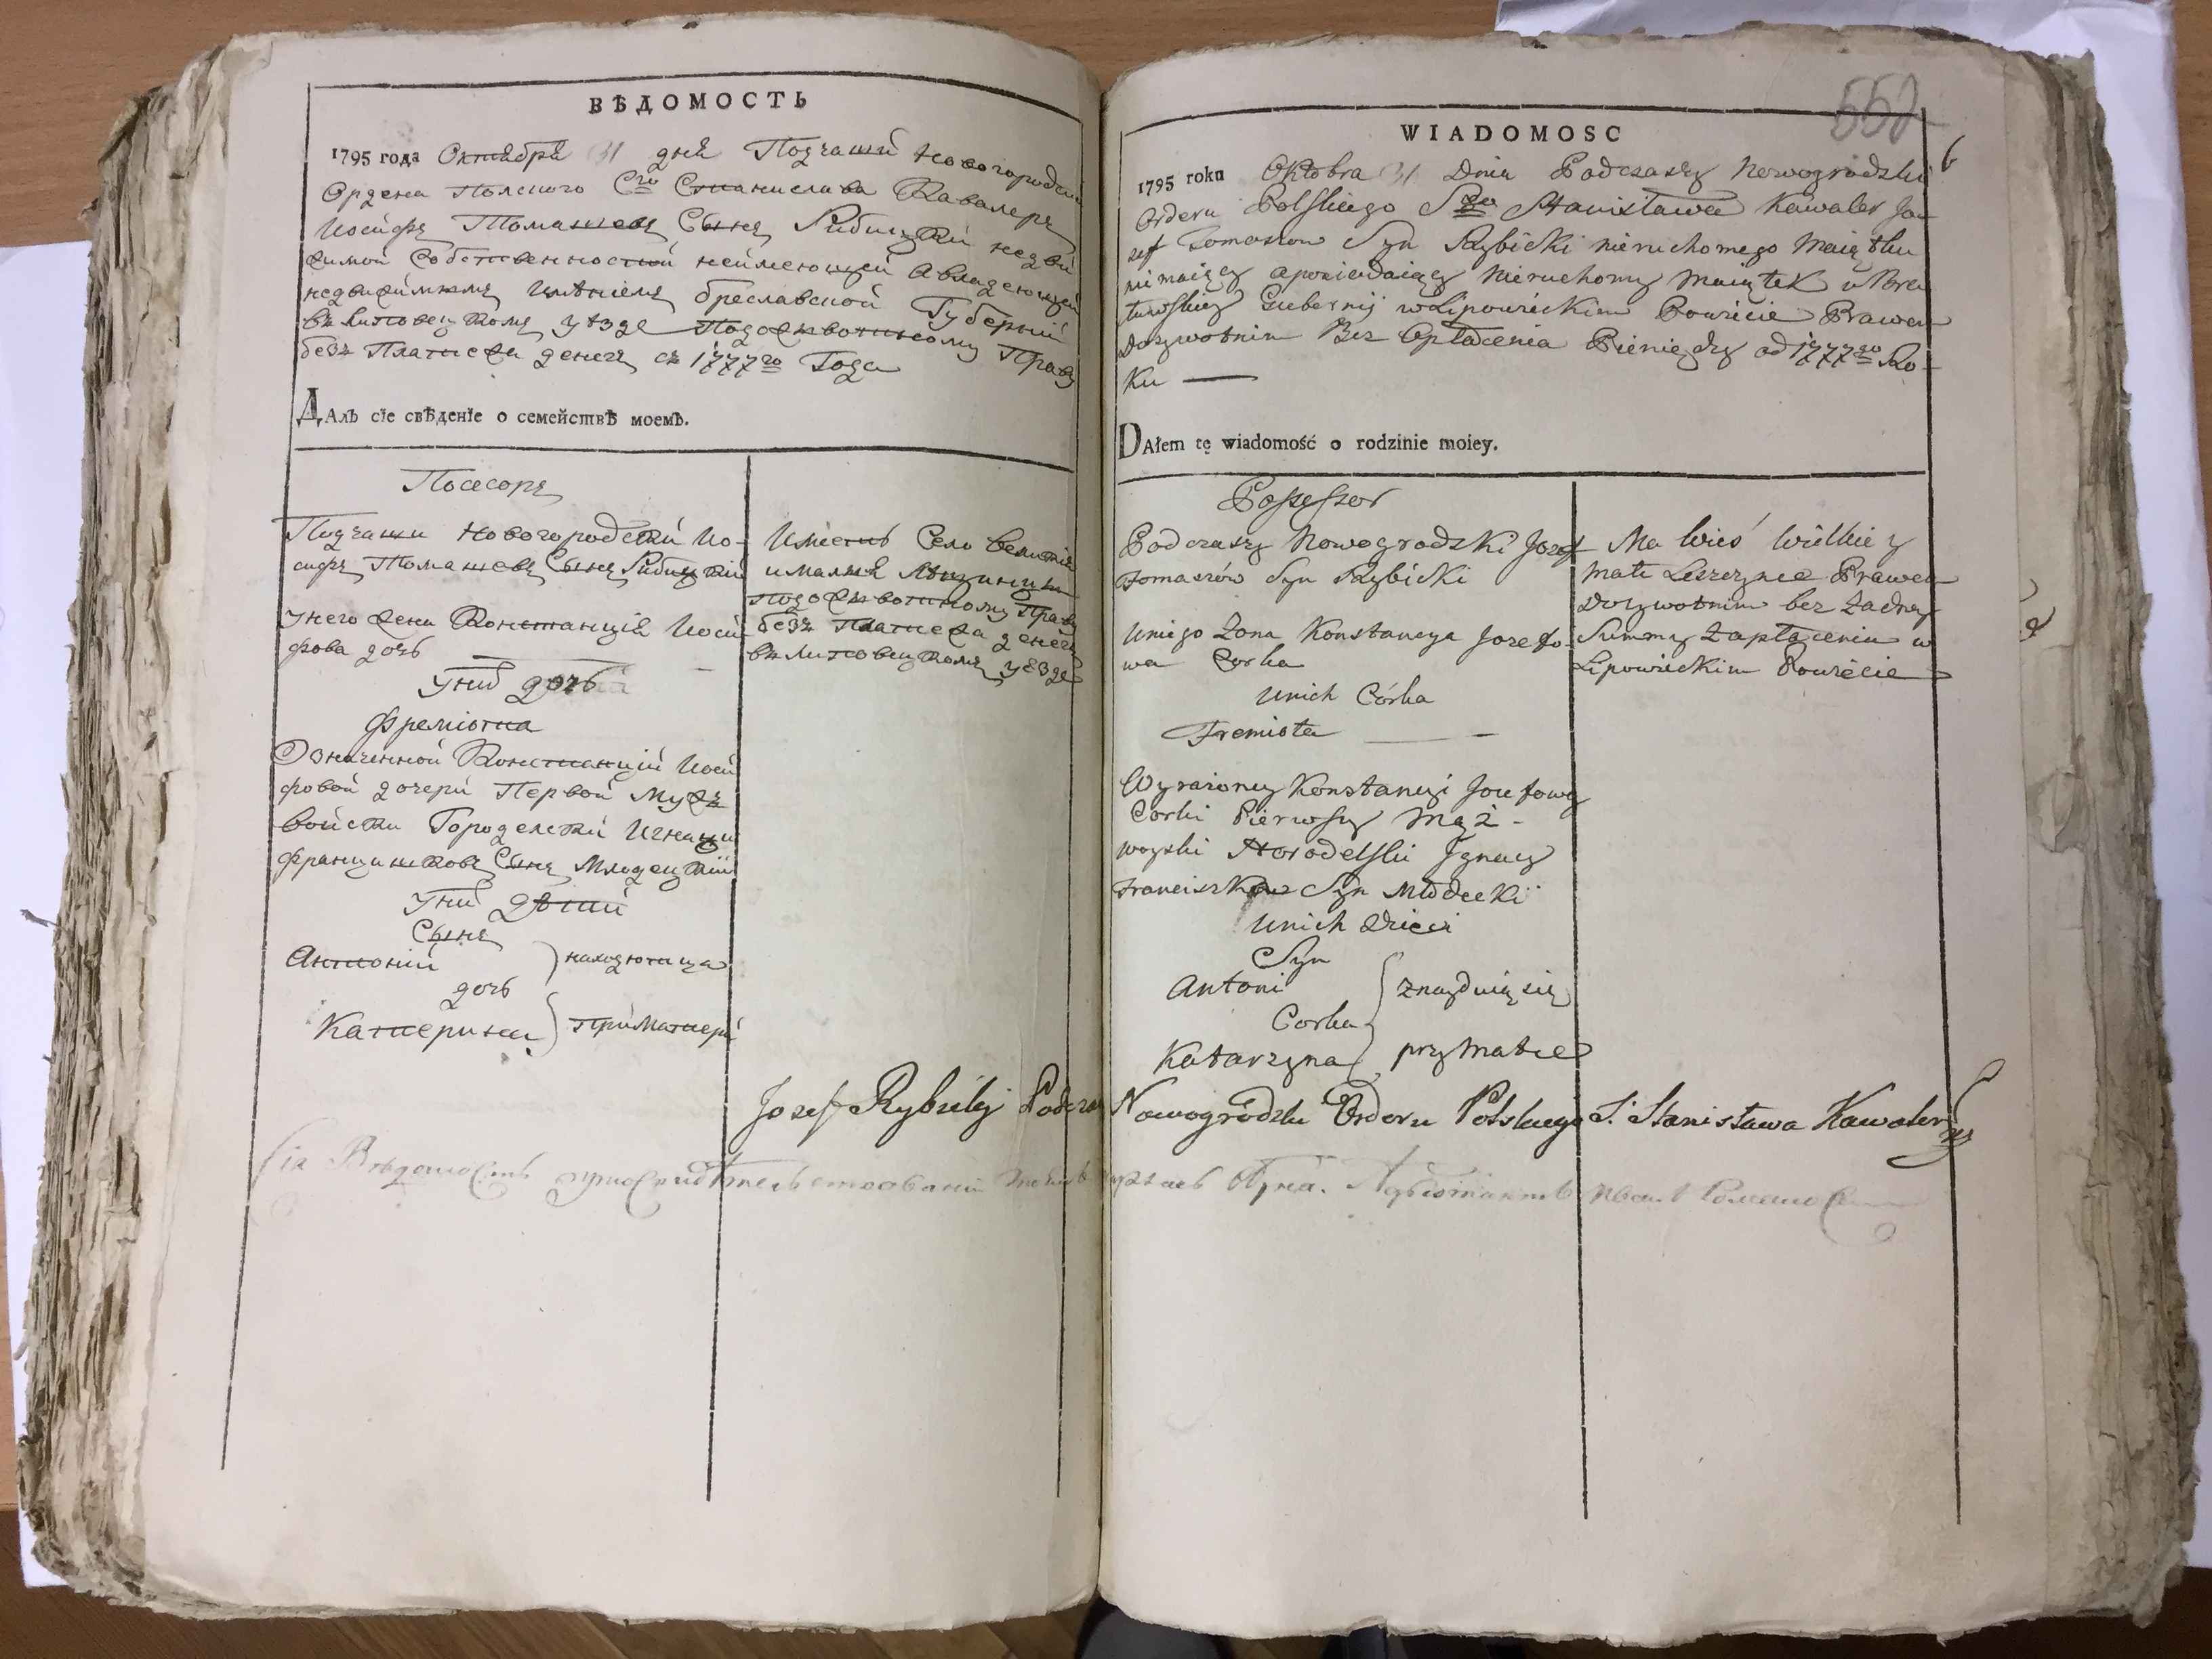 ВѢДОМОСТЬ
1795 года Октября 31 дня Подчаши Новогородски
Ордена Полского Сго Станислава Кавалеръ
Иосифъ Томашевъ Сынъ Рибицкий недви
жимой собственностии неимеющей Авладеющей
недвижимымъ имѣниемъ бреславской Губерний
въ Липовецкомъ уѣзде Подоживотному Праву
безъ Платежа денегъ съ 1777го Года
ДАлъ сїе свѣденїе о семействѣ моемъ.
Посесоръ
Подчаши Новогородский Ио-
сифъ Томашевъ Сынъ Рибицкий
унего жена Констанция Иоси
фова дочь
уних дочь
Фремиота
Означенной Констанций Иоси
фовой дочери Первой Мужъ
войски Городелский Игнаци
Францишковъ Сынъ Млодецкий
уних дѣтий
Сынъ
Антоний
дочь
Катерина
находютца
приматери
Имеетъ Село Великия
ималыя Лещинцы
подоживотному Праву
безъ платежа денегъ
въ Липовецкомъ уѣзде
WIADOMOSC
557
6
1795 roku Oktobra 31 Dnia Podczaszy Nowogrodzki
Orderu Polskiego Sgo Stanisława Kawaler Jo-
zef Tomaszow Syn Rybicki nieruchomego Maiątku
nie maiący aposiedaiący Nieruchomy Maiątek w Brac
ławskiey Gubernij w Lipowieckim Powiecie Prawem
Dożywotnim Bez Opłacenia Pieniędzy od 1777go Ro-
ku
DAłem tę wiadomość o rodzinie moiey.
Possessor
Podczaszy Nowogrodzki Jozef
Tomaszów Syn Rybicki
Uniego Zona Konstancya Jozefo-
wa Corka
Unich Córka
Fremiota
Wyrażoney Konstancyi Jozefowey
Corki Pierwszy Mąż -
woyski Horodelski Jgnacy
Franciszkow Syn Młodecki
Unich Dzieci
Syn
Antoni
Corka
Katarzyna
znayduią się
przy Matce
Ma Wieś Wielkie y
Małe Leszczynce Prawem
Dożywotnim bez żadney
Summy Zapłacenia w
Lipowieckim Powiecie
Jozef Rybicki Podczaszy Nowogródzki Orderu Polskiego S. Stanisława Kawaler
Сiя Вѣдомость